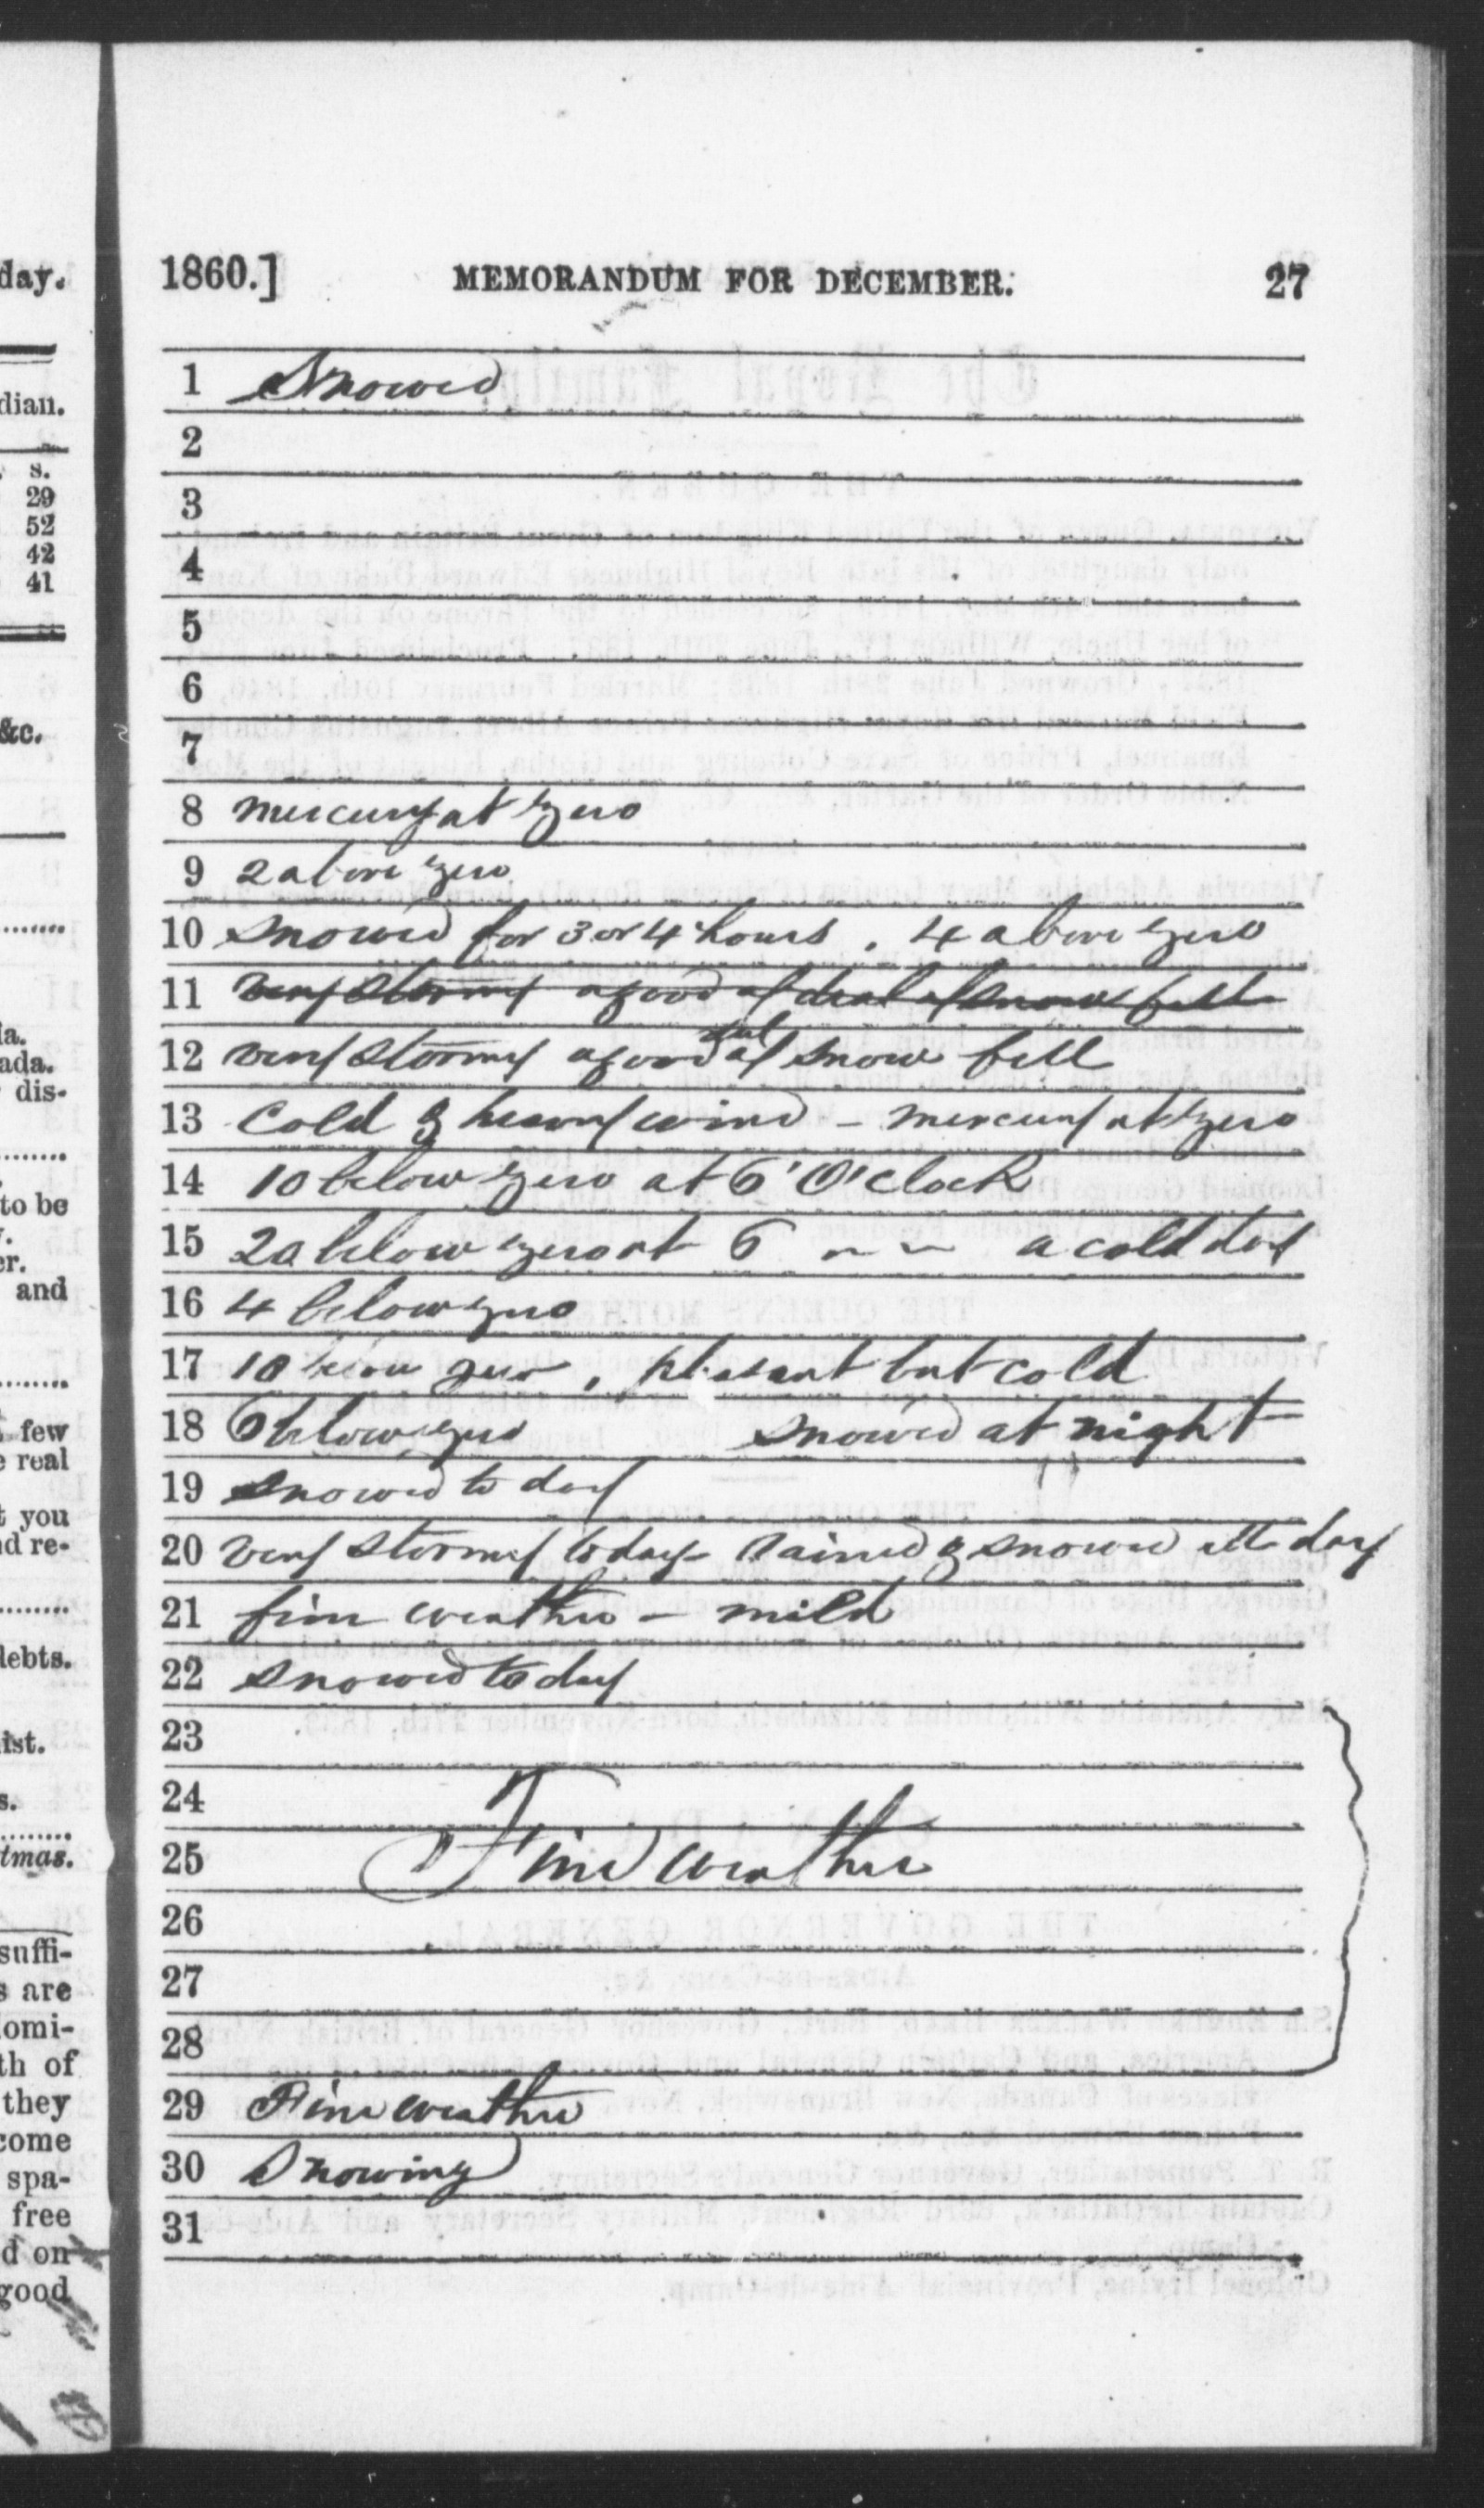 day.
dian.
s.
29
52
42
41
&c.
la.
ada.
dis-
to be
er.
and
few
real
you
d re-
debts.
ist.
s.
tmas.
suffi-
s are
lomi-
th of
they
come
spa-
free
d on
good
1860.] MEMORANDUM FOR DECEMBER. 27
1 Snowed
2
3
4
5
6
7
8 mercury at zero
9 2 above zero
10 snowed for 3 or 4 hours . 4 above zero
11 very stormy a good of deal of snow fell
12 very stormy a good deal of snow fell
13 Cold & heavy wind - mercury at zero
14 10 below zero at 6 O'clock
15 20 below zero at 6 " " a cold day
16 4 below zero
17 10 below zero , pleasant but cold
18 6 below zero snowed at night
19 snowed to day
20 very stormy to day - rained & snowed all day
21 fine weather - mild
22 snowed to day
23
24
25 Fine weather
26
27
28
29 Fine weather
30 Snowing
31